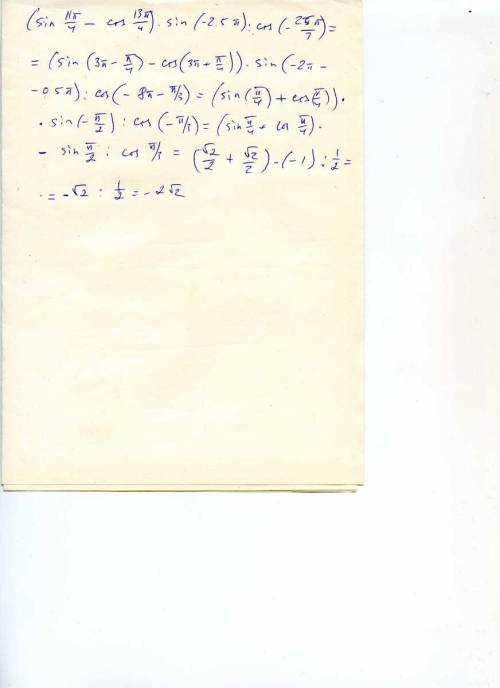 (sin 11π/4 − cos 13π/4) · sin(-2.5π) : cos(-25π/7) =
= (sin(3π - π/4) - cos(3π + π/4)) · sin(-2π -
- 0.5π) : cos(- 8π - π/3) = (sin(π/4) + cos π/4)) ·
· sin(-π/2) : cos(-π/3) = (sin π/4 + cos π/4) ·
- sin π/2 : cos π/3 = (√2/2 + √2/2) · (-1) : 1/2 =
= -√2 : 1/2 = -2√2